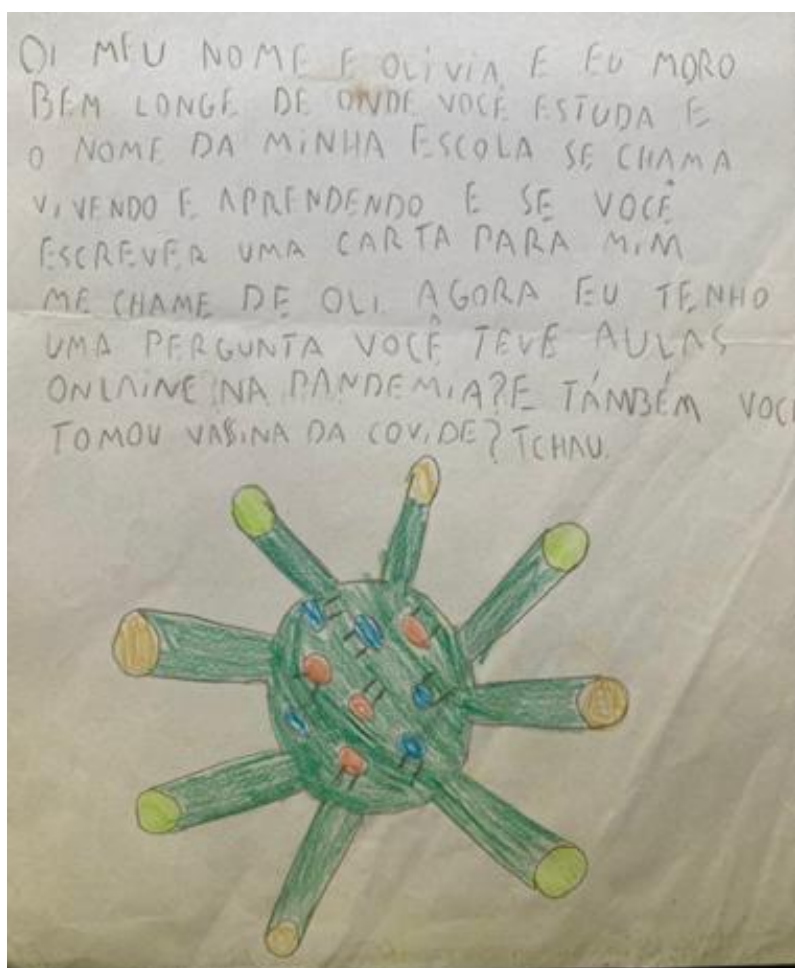 OI MEU NOME E OLIVIA E EU MORO
BEM LONGE DE ONDE VOCÊ ESTUDA E
O NOME DA MINHA ESCOLA SE CHAMA
VIVENDO E APRENDENDO E SE VOCÊ
ESCREVER UMA CARTA PARA MIM
ME CHAME DE OLI. AGORA EU TENHO
UMA PERGUNTA VOCÊ TEVE AULAS
ONLAINE NA PANDEMIA? E TÁNBÉM VOCE
TOMOU VASINA DA COVIDE? TCHAU.